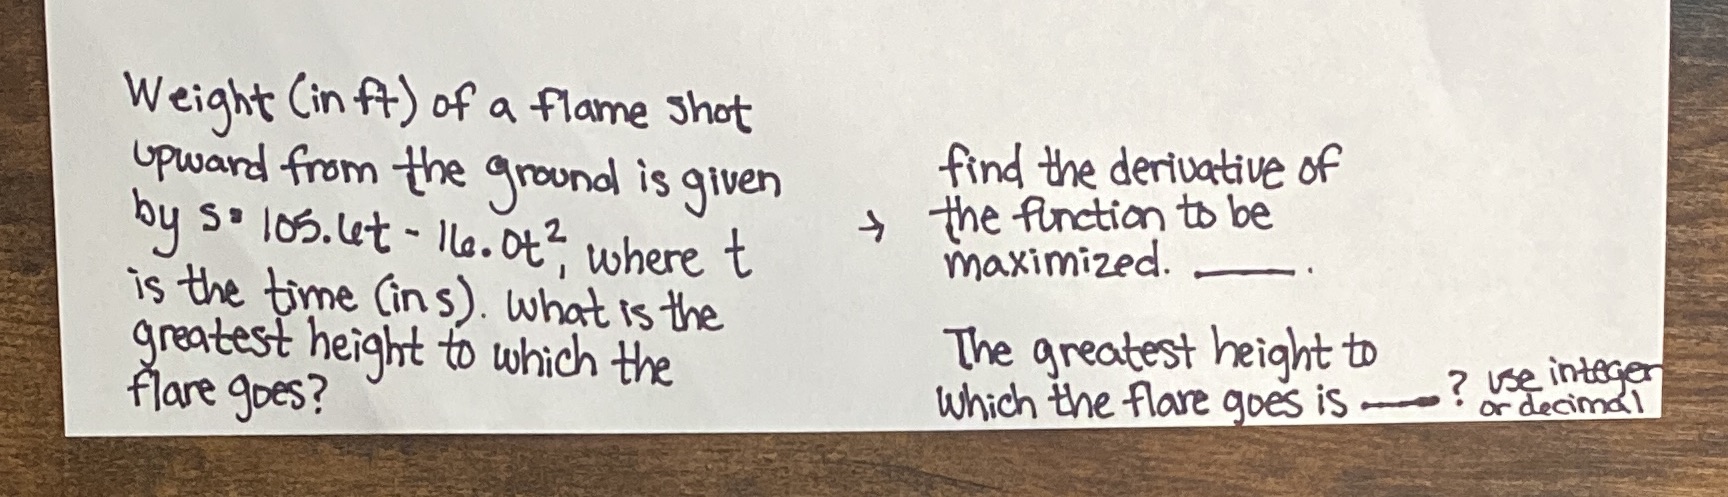 Weight (in ft) of a flame shot
upward from the ground is given
by s = 105.6t - 16.0t², where t
is the time (in s). What is the
greatest height to which the
flare goes?
→ find the derivative of
the function to be
maximized. ____.
The greatest height to
which the flare goes is ____? use integer
or decimal